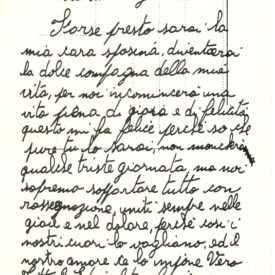 Forse presto sarai la
mia cara sposina, diventerai
la dolce compagna della mia
vita, per noi incomincerà una
vita piena di gioia e di felicità
questo mi fa felice perché so che
pure tu lo sarai, non mancherà
qualche triste giornata ma noi
sapremo soffortare tutto con
rassegnazione, uniti sempre nelle
gioie e nel dolore, perché così i
nostri cuori lo vogliano, ed il
nostro amore ce lo impone vero